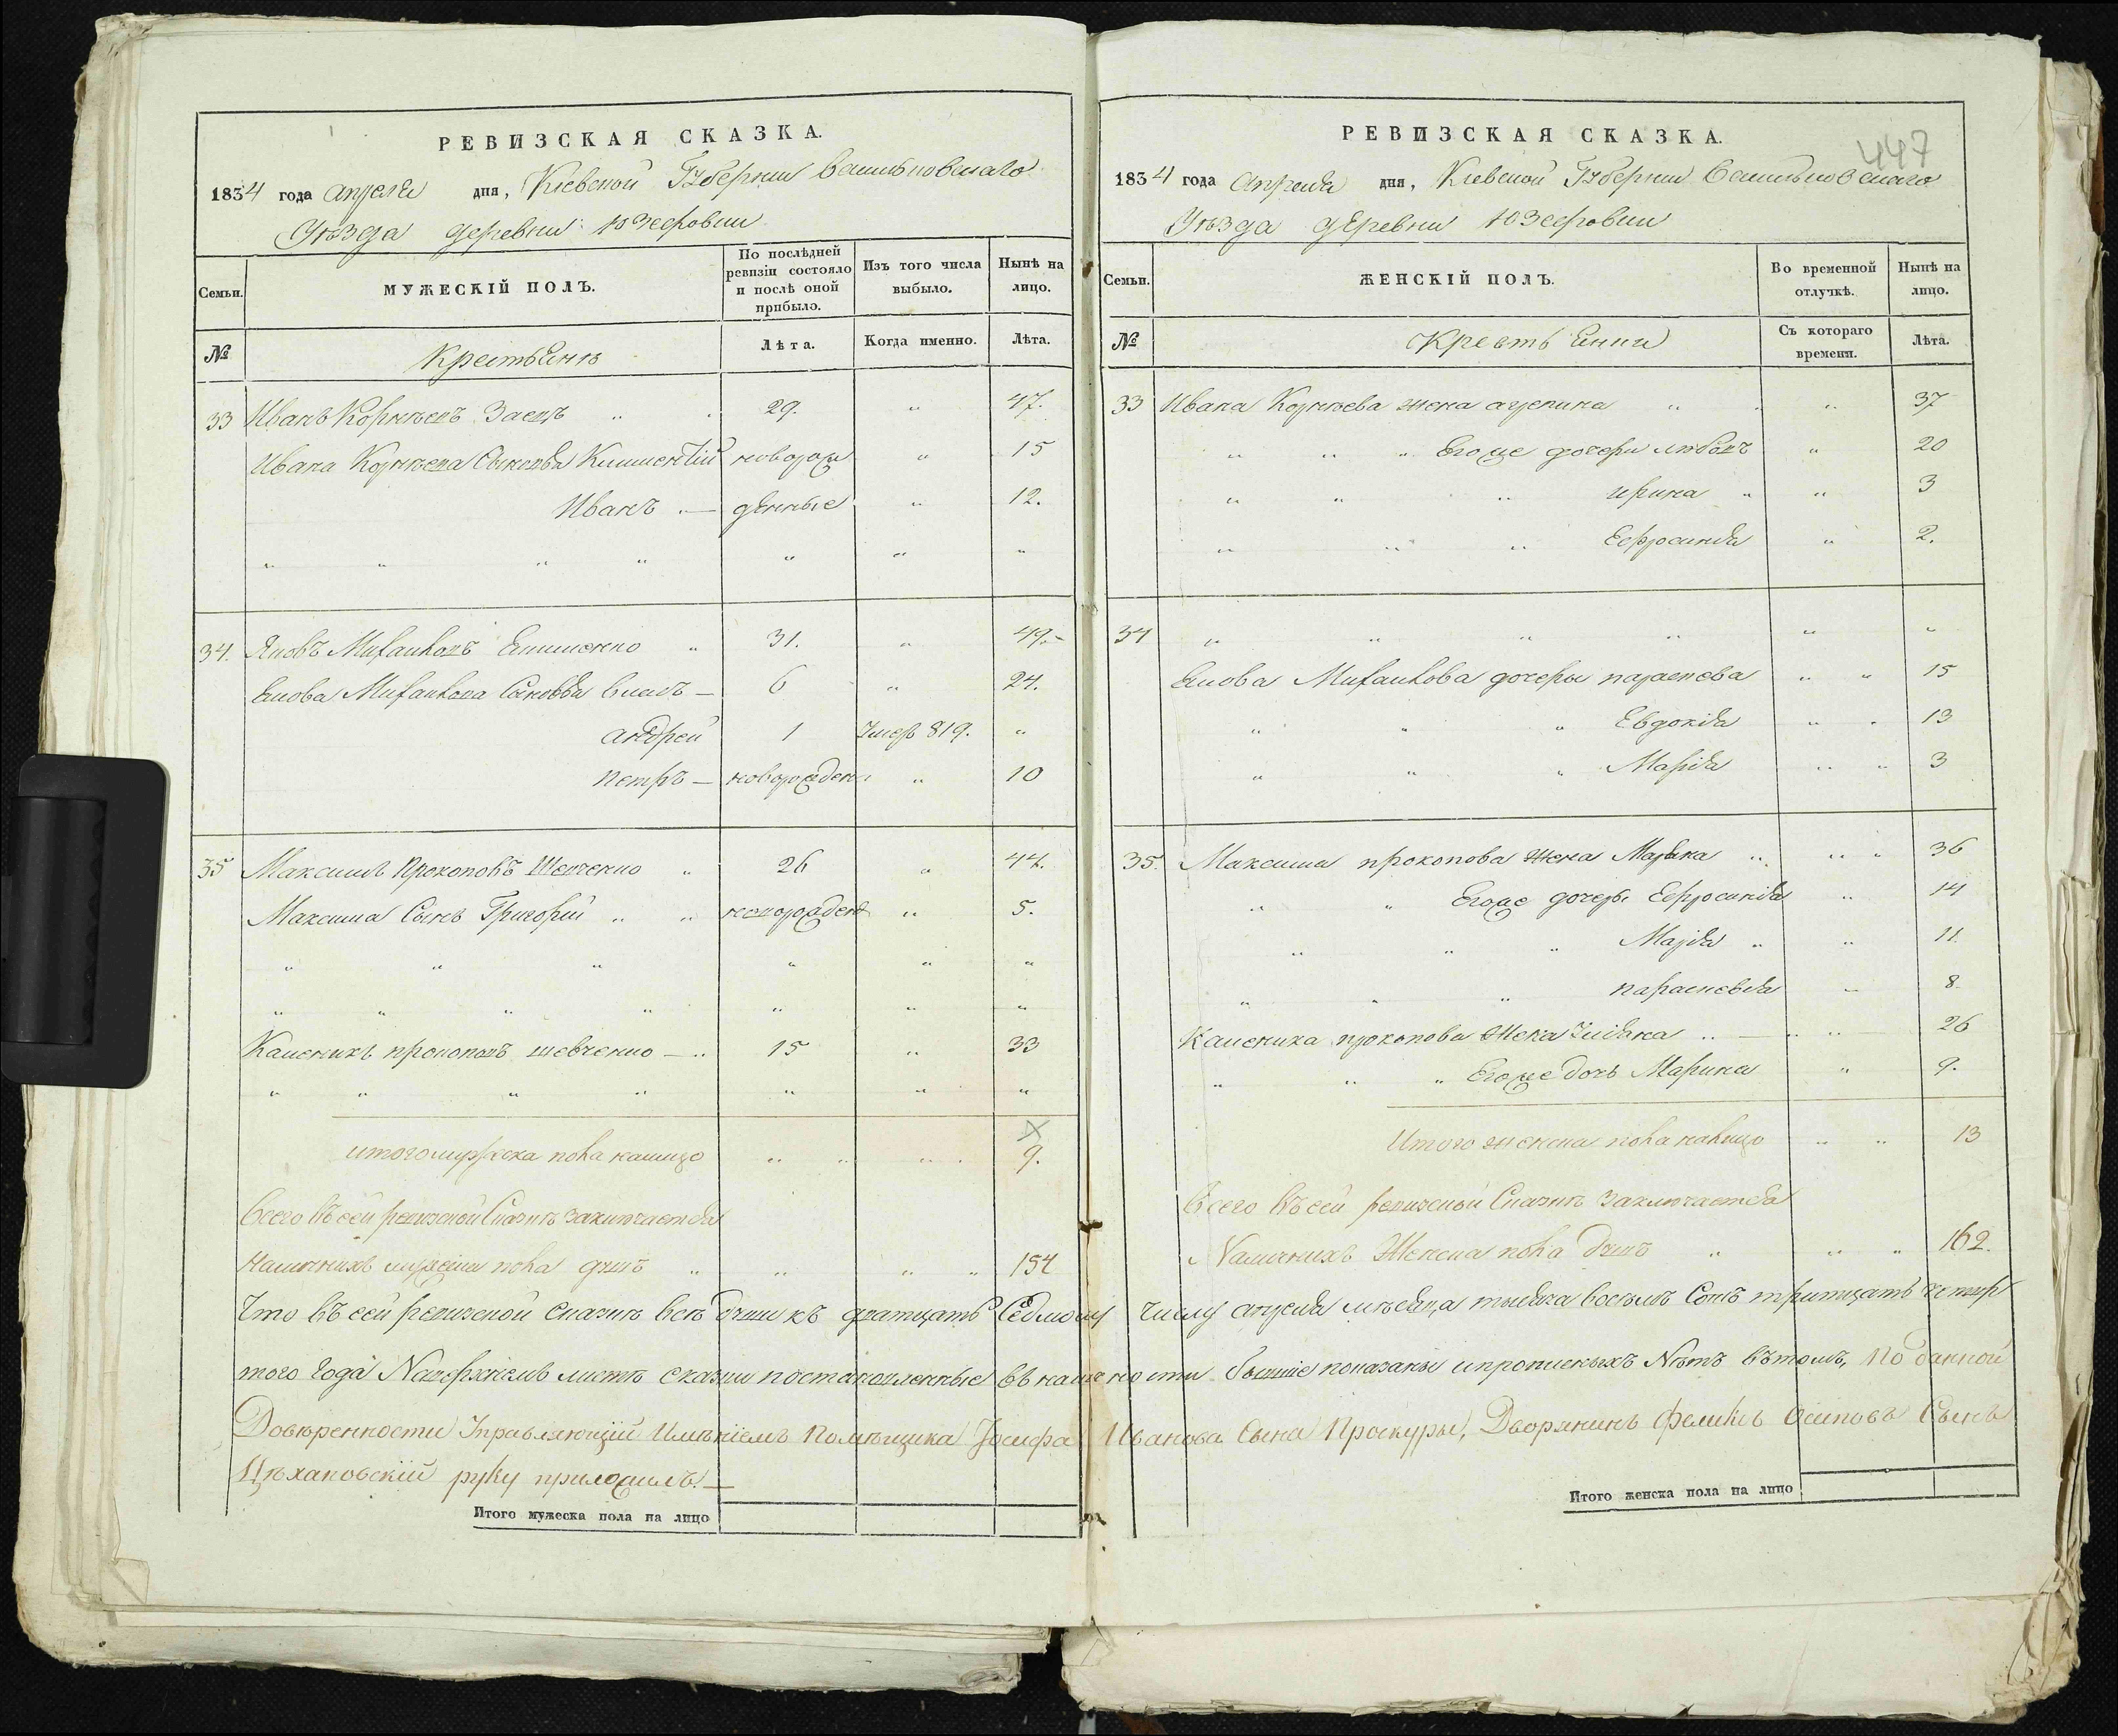 РЕВИЗСКАЯ СКАЗКА.
1834 года апреля дня, Кіевской Губерніи Васильковскаго
Уѣзда деревни Юзефовки
Семьи.
МУЖЕСКІЙ ПОЛЪ.
По послѣдней ревизіи состояло и послѣ оной прибыло.
Изъ того числа выбыло.
Нынѣ на лицо.
№
Крестьянѣ
Лѣта.
Когда именно.
Лѣта.
33 Иванъ Корнѣевъ Заецъ " 29. " 47.
Ивана Корнѣева Сыновья Климентій новорож " 15
Иванъ — денные " 12.
" " " " " " "
34. Яковъ Михайловъ " 31. " 49.
Якова Михайлова Сыновья Власъ — 6 " 24.
андрей 1 Умеръ 819. "
петръ — новорожден " 10
35 Максимъ Прокоповъ Шевченко " 26 " 44.
Максима Сынъ Григорій " " новорожден " 5.
" " " " " "
" " " " " " "
Каленикъ прокоповъ шевченко — " 15 " 33
" " " " " " "
итого мужеска пола налицо " " " " 9.
Всего въ сей ревизской Сказкѣ заключается
Наличнихъ мужеска пола душъ " " " " 154
Что въ сей ревизской сказкѣ всѣ души къ дватцать Седмому
того года
Довѣренности Управляющій Имѣніемъ Помѣщика Іосифа
Цѣхановскій руку приложилъ. —
Итого мужеска пола на лицо
РЕВИЗСКАЯ СКАЗКА.
447
1834 года Апреля дня, Кіевской Губерніи Васильковскаго
Уѣзда деревни Юзефовки
Семьи.
ЖЕНСКІЙ ПОЛЪ.
Во временной отлучкѣ.
Нынѣ на лицо.
№
Крестьянки
Съ котораго времени.
Лѣта.
33 Ивана Корнѣева жена агрепина " " " 37
" " " Егоже дочери любовъ " 20
" " " ирина " " 3
" " " Ефросинія " 2.
34 " " " " " "
Якова Михайлова дочеры параскева " " 15
" " " Евдокія " " 13
" " " Марія " " 3
35. Максима прокопова жена Марина " " " 36
" " Егоже дочеры Ефросинія " 14
" " " Марія " " 11.
" " " параскевія " 8
Каленика прокопова Жена Уліяна " — " " 26
" " " Егоже дочь Марина " 9.
Итого женска пола налицо " " 13
Всего въ сей ревизской Сказкѣ заключается
Наличнихъ Женска пола душъ " " " 162.
числу апреля мѣсяца тысяча восемъ Сотъ тритцать четвер
показаны и прописныхъ Нѣтъ вътомъ, По данной
Иванова Сына Проскуры, Дворянинъ Феликсъ Осиповъ Сынъ
Итого женска пола на лицо